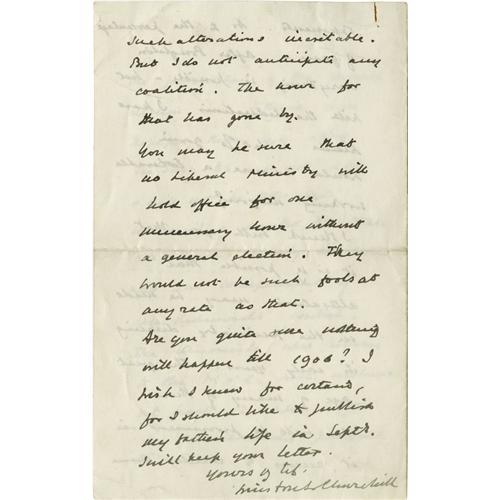 such alterations inevitable.
But I do not anticipate any
coalition. The hour for
that has gone by.
You may be sure that
no Liberal Ministry will
hold office for one
unnecessary hour without
a general election. They
would not be such fools at
any rate as that.
Are you quite sure nothing
will happen till 1906? I
wish I knew for certain,
for I should like to publish
my father's life in Septr.
I will keep your letter.
Yours
Winston S. Churchill